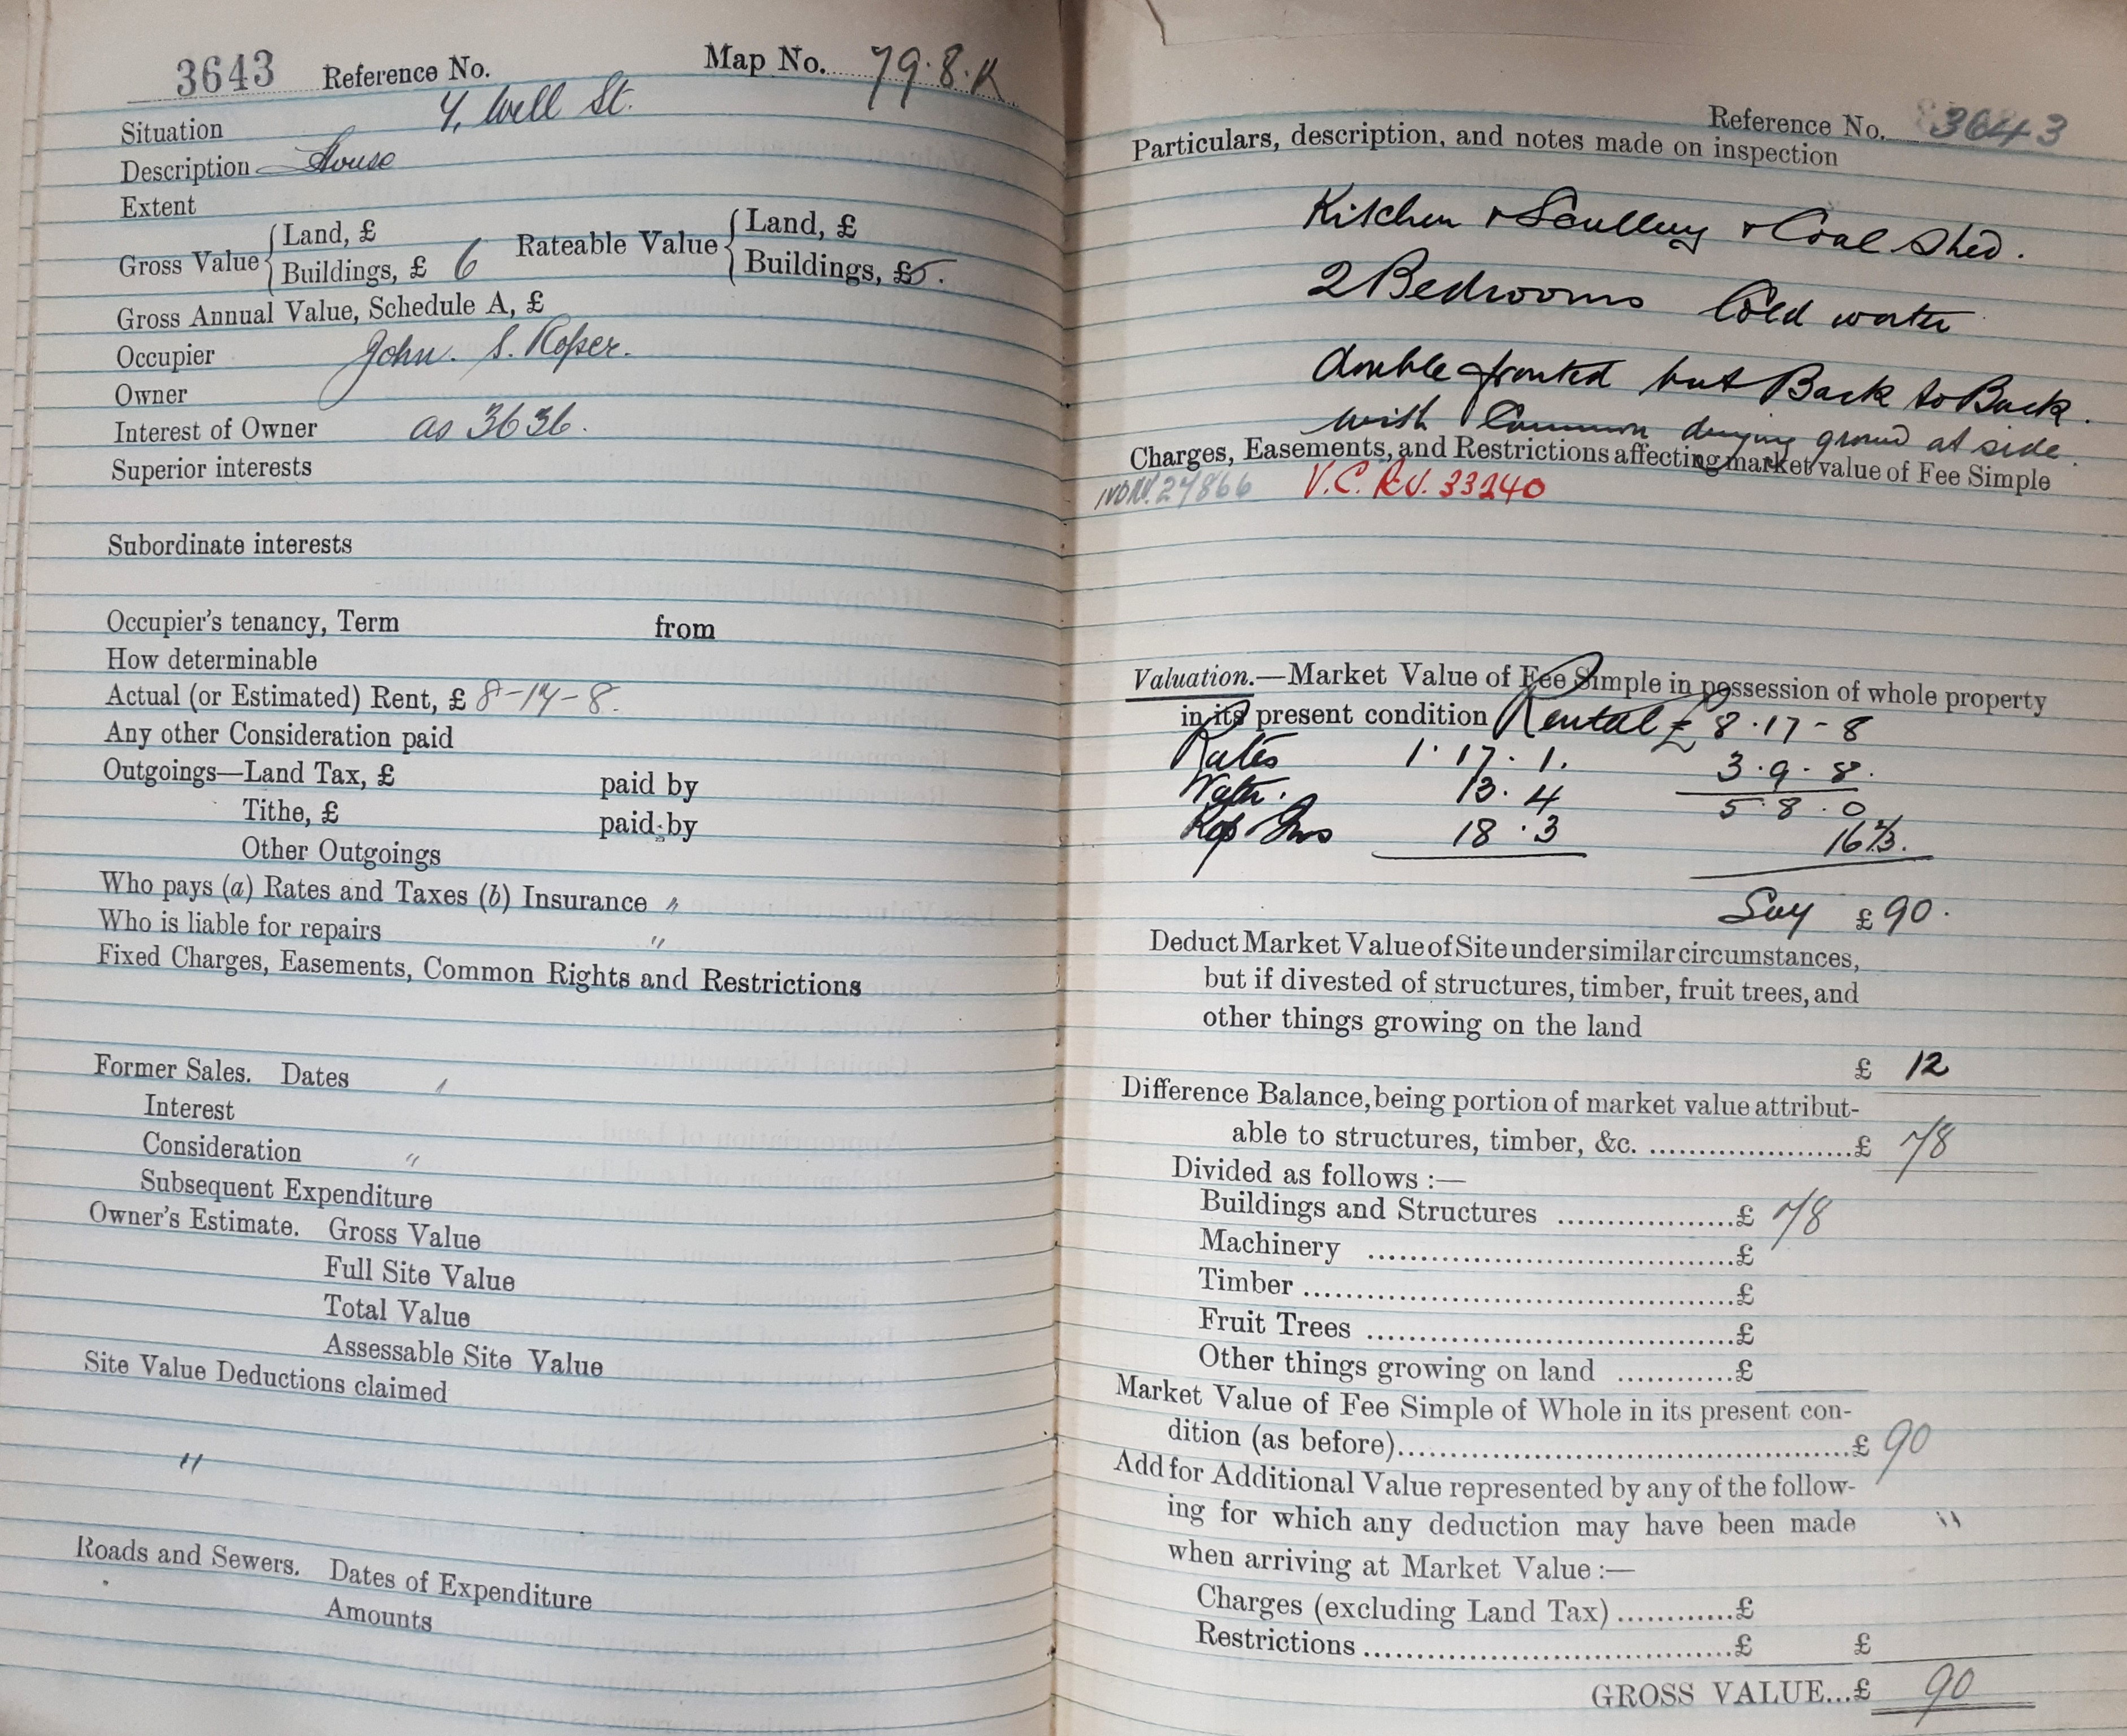 3643 Reference No. Map No. 79.8.K
Situation 4, Well St.
Description House
Extent
Gross Value { Land, £
Buildings, £ 6
Rateable Value { Land, £
Buildings, £ 5.
Gross Annual Value, Schedule A, £
Occupier John. S. Roper.
Owner
Interest of Owner as 3636.
Superior interests
Subordinate interests
Occupier's tenancy, Term from
How determinable
Actual (or Estimated) Rent, £ 8-17-8.
Any other Consideration paid
Outgoings—Land Tax, £ paid by
Tithe, £ paid by
Other Outgoings
Who pays (a) Rates and Taxes (b) Insurance "
Who is liable for repairs "
Fixed Charges, Easements, Common Rights and Restrictions
Former Sales. Dates
Interest
Consideration "
Subsequent Expenditure
Owner's Estimate. Gross Value
Full Site Value
Total Value
Assessable Site Value
Site Value Deductions claimed
"
Roads and Sewers. Dates of Expenditure
Amounts
Reference No. 3643
Particulars, description, and notes made on inspection
Kitchen + Scullery + Coal Shed.
2 Bedrooms Cold water
double fronted but Back to Back.
with Common drying ground at side.
Charges, Easements, and Restrictions affecting market value of Fee Simple
27866 V.C. R.V. 33240
Valuation.—Market Value of Fee Simple in possession of whole property
in its present condition Rental £ 8.17-8
Rates 1.17.1. 3.9.8.
Water. 13.4 5 8.0
Rep Ins 18.3 16⅔.
Say £90.
Deduct Market Value of Site under similar circumstances,
but if divested of structures, timber, fruit trees, and
other things growing on the land
£ 12
Difference Balance, being portion of market value attribut-
able to structures, timber, &c. ....................£ 78
Divided as follows :—
Buildings and Structures ..................£ 78
Machinery ......................................£
Timber .............................................£
Fruit Trees ......................................£
Other things growing on land ............£
Market Value of Fee Simple of Whole in its present con-
dition (as before)..............................................£ 90
Add for Additional Value represented by any of the follow-
ing for which any deduction may have been made "
when arriving at Market Value :—
Charges (excluding Land Tax) ............£
Restrictions ......................................£ £
GROSS VALUE...£ 90